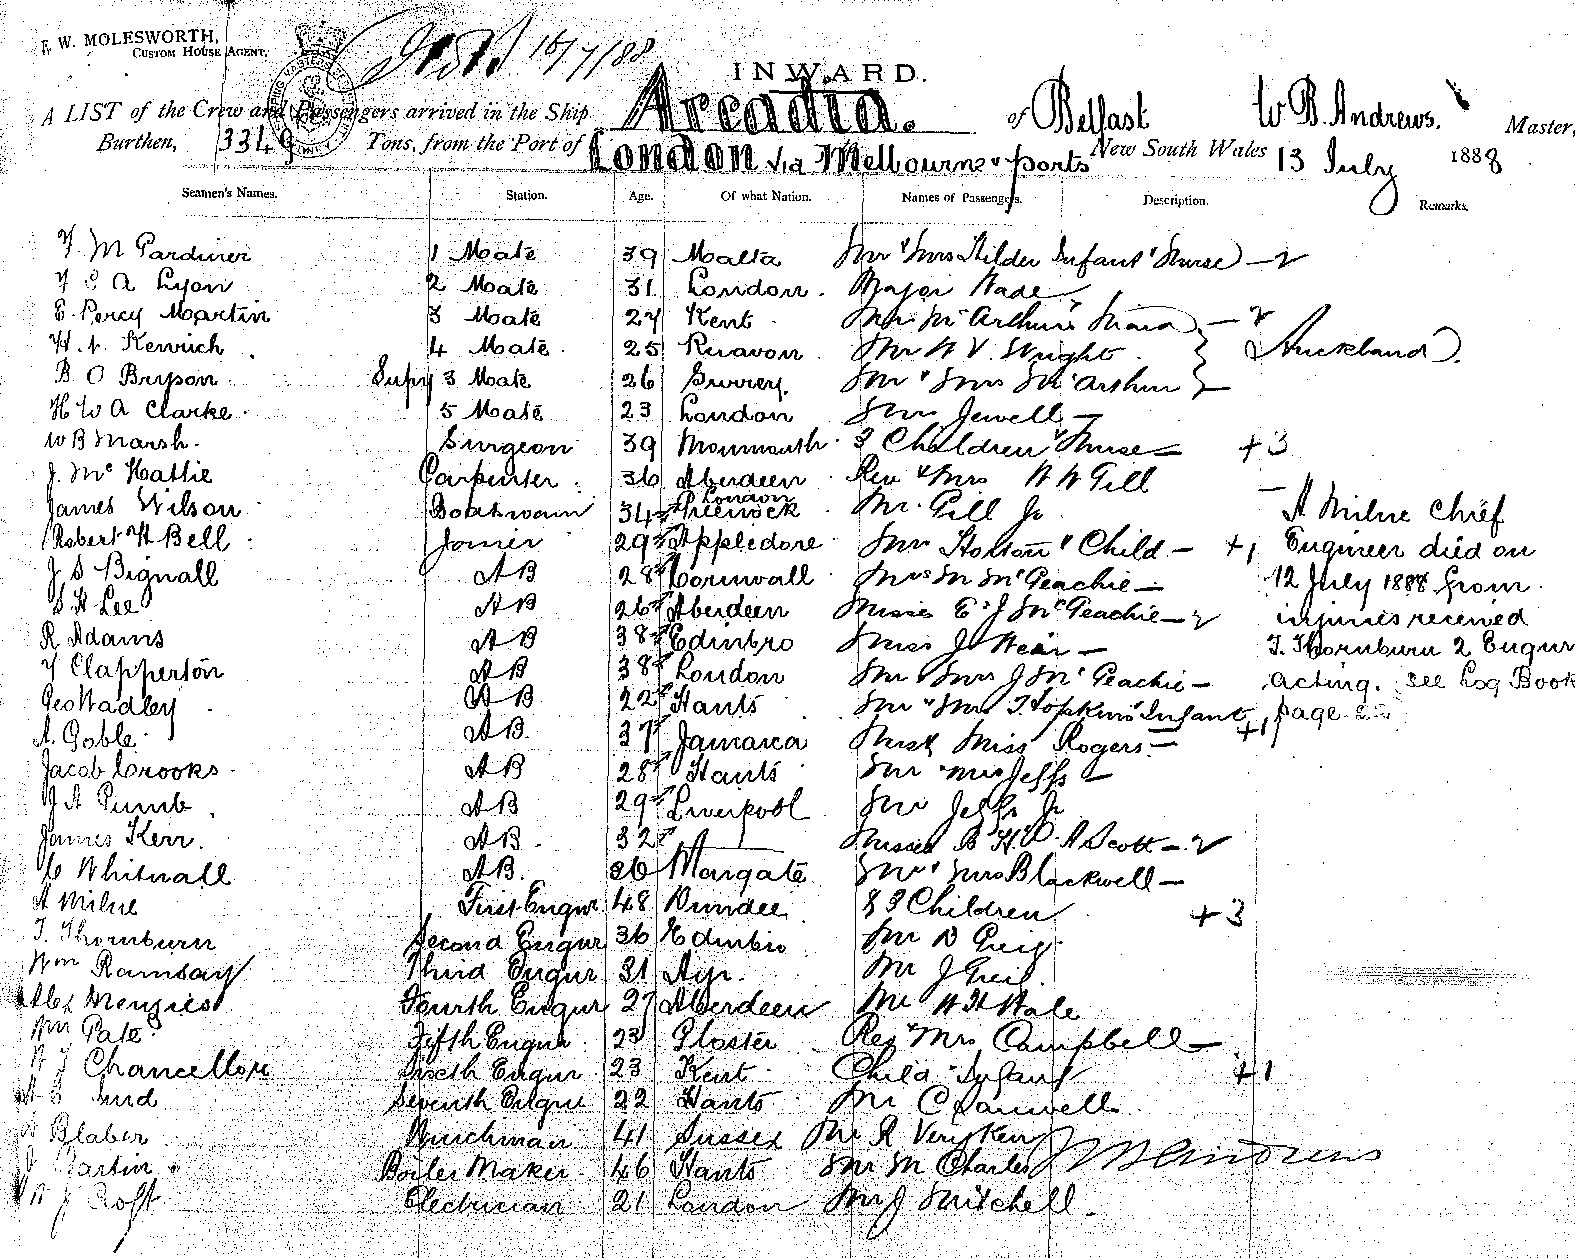 W. MOLESWORTH,
CUSTOM HOUSE AGENT.
16/7/88
INWARD.
A LIST of the Crew and Passengers arrived in the Ship Arcadia. of Belfast W B. Andrews. Master,
Burthen, 3349 Tons, from the Port of London via Melbourne & ports New South Wales 13 July 1888
Seamen's Names. Station. Age. Of what Nation. Names of Passengers. Description. Remarks.
M Gardiner 1 Mate 39 Malta Mr & Mrs Hilder Infant & Nurse
A Lyon 2 Mate 31 London. Major Wade
E. Percy Martin 3 Mate 27 Kent Mr McArthur's
Kenrich 4 Mate 25 Mr W V. Wright Auckland
B O Bryson Supy 3 Mate 26 Surrey. Mr & Mrs McArthur
H W A Clarke 5 Mate 23 London Mrs Jewell
W B Marsh. Surgeon 39 Monmouth 3 Children & Nurse +3
J. Mc Hattie Carpenter 36 Aberdeen Rev & Mrs W W Gill
James Wilson Boatswain 34 London Greenock Mr. Gill Jr A Milne Chief
Robert H Bell Joiner 29 Appledore Mrs & Child +1 Engineer died on
J S Bignall AB 28 Cornwall Mrs M McGeachie 12 July 1888 from
Lee AB 26 Aberdeen Misses E & J McGeachie injuries received
R Adams AB 38 Edinbro Miss J Weir T. Thornburn 2 Engnr
Clapperton AB 38 London Mr & Mrs J McGeachie acting. see Log Book
Geo Hadley AB 22 Hants Mr & Mrs T Hopkins Infant +1 page
A. Goble AB. 37 Jamaica Miss Rogers
Jacob Crooks AB 28 Hants Mr & Mrs Jeffs
AB 29 Liverpool Mr Jeffs Jr
James Kerr. AB. 32 Misses Scott
Whitnall AB. 36 Margate Mr & Mrs Blackwell
A Milne First Engnr 48 Dundee & 3 Children +3
T. Thornburn Second Engnr 36 Edinbro Mr Greig
Wm Ramsay Third Engnr 31 Ayr. Mr J Greig
Alex Menzies Fourth Engnr 27 Aberdeen Mr W H Hale
Wm Pate Fifth Engnr 23 Gloster Rev & Mrs Campbell
Chancellor Sixth Engnr 23 Kent Child & Infant +1
Seventh Engnr 22 Hants Mr C
Blaber Winchman 41 Sussex Mr R
Martin Boiler Maker 46 Hants Mr M Charles W B Andrews
J Croft Electrician 21 London Mr J Mitchell